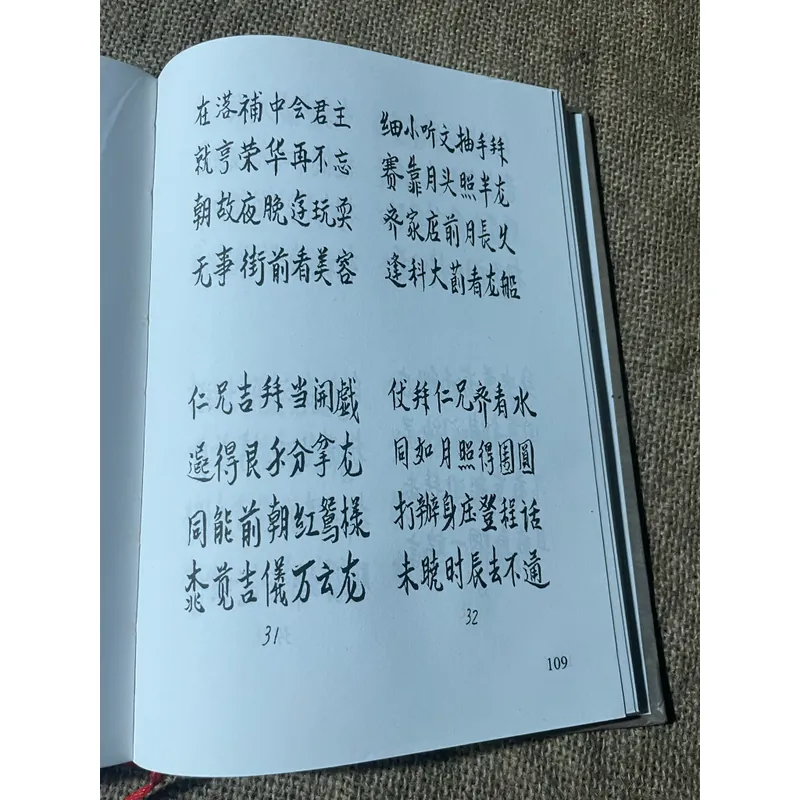 在落補中会君主
就亨荣华再不忘
朝故夜晚逰玩耍
无事街前看美容
细小听文抽手拜
赛靠月头照半龙
齐家店前月長久
逢科大蓢看龙船
仁兄吉拜当開戲
得良分拿龙
同能前朝红鴛樣
觉吉儀万云龙
31
伏拜仁兄齊看水
同如月照得圓
打辦身庄登程话
未晓时辰去不通
32
109